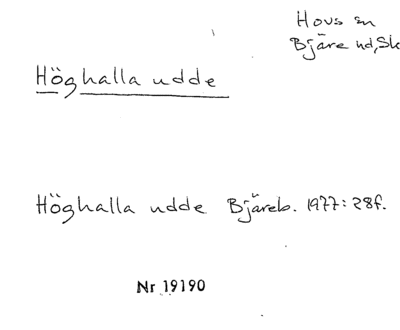 Hovs sn
Bjäre hd, Sk
Höghalla udde
Höghalla udde Bjäreb. 1977: 28f.
Nr 19190